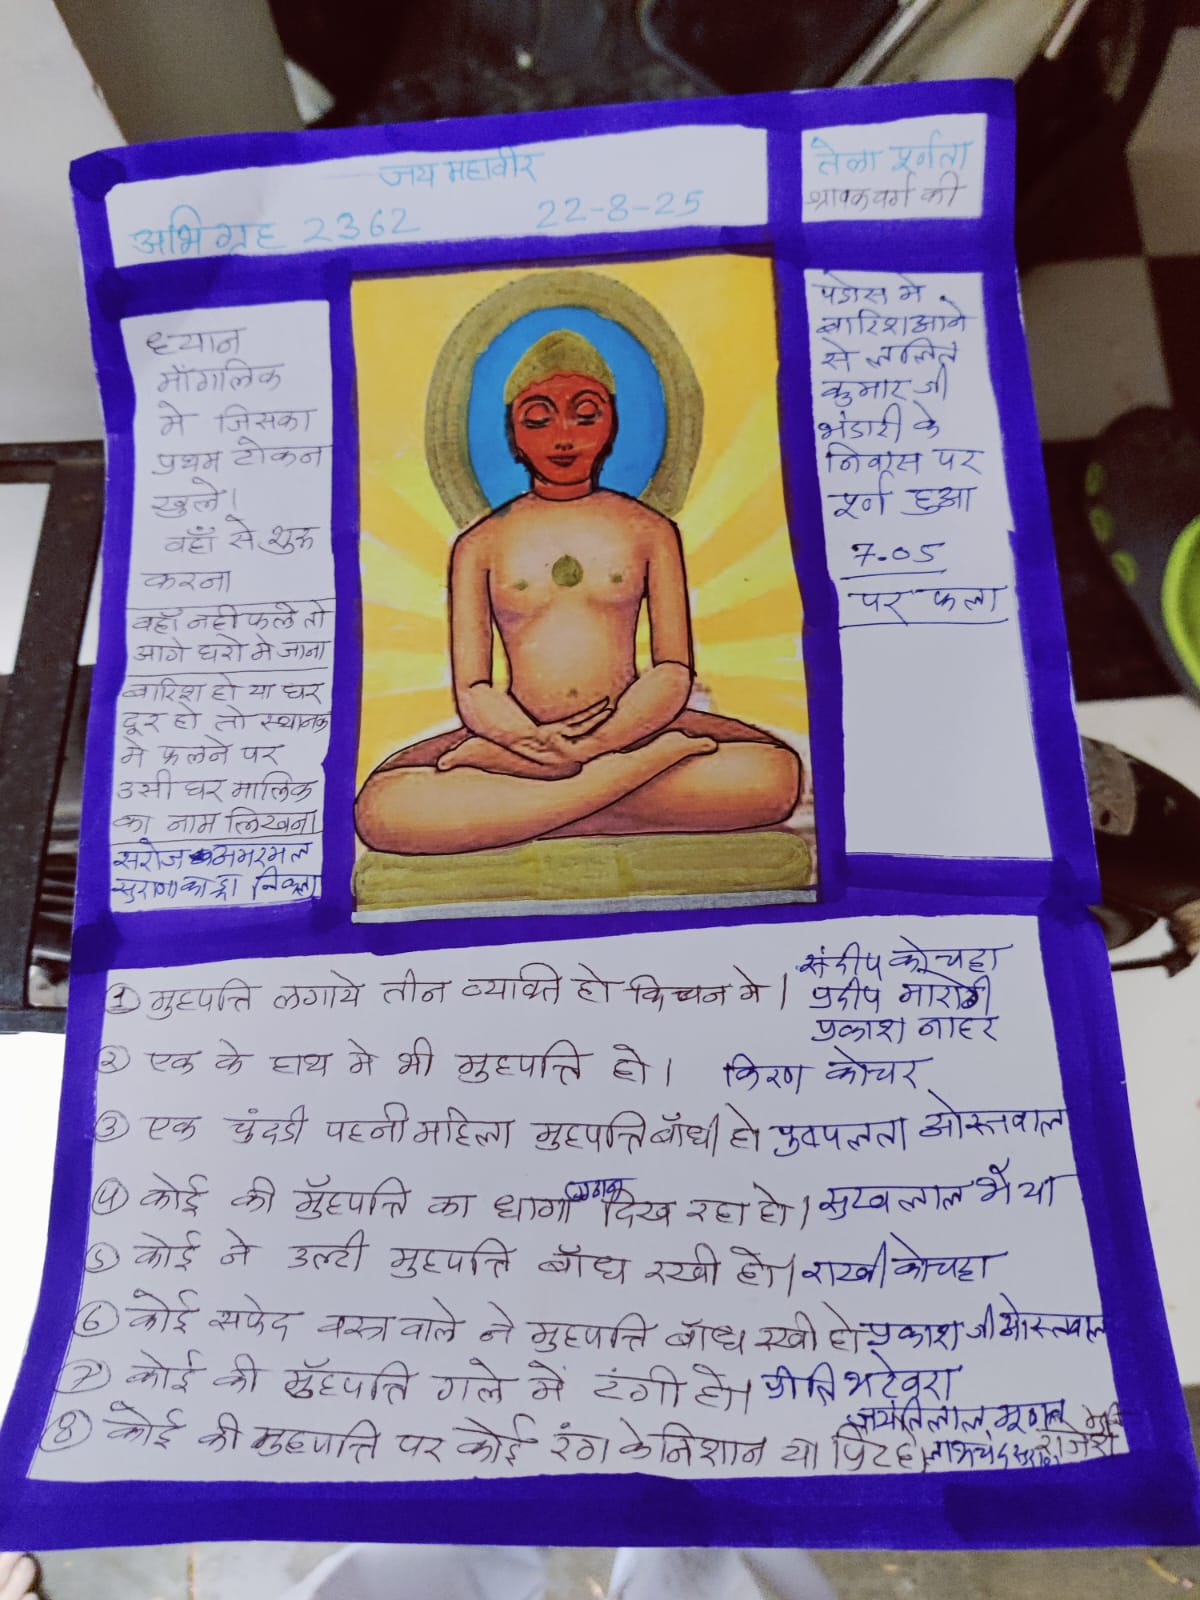 जय महावीर
अभिग्रह 2362 22-8-25
तेला पूर्णता
श्रावकवर्ग की
ध्यान
माँगलिक
मे जिसका
प्रथम टोकन
खुले।
वहाँ से शुरू
करना
वहाँ नही फले तो
आगे घरो मे जाना
बारिश हो या घर
दूर हो तो स्थानक
मे फलने पर
उसी घर मालिक
का नाम लिखना
सरोज अमरमल
सुराणा का ही निकला
पडोस मे
बारिश आने
से ललित
कुमार जी
भंडारी के
निवास पर
पूर्ण हुआ
7.05
पर फला
① मुहपत्ति लगाये तीन व्यक्ति हो किचन मे। संदीप कोचहा
प्रदीप मारोठी
प्रकाश नाहर
② एक के हाथ मे भी मुहपत्ति हो। किरण कोचर
③ एक चुंदडी पहनी महिला मुहपत्ति बाँधी हो पुष्पलता ओस्तवाल
④ कोई की मुँहपत्ति का धागा दिख रहा हो। सुखलाल भैया
⑤ कोई ने उल्टी मुहपत्ति बाँध रखी हो। राखी कोचहा
⑥ कोई सफेद वस्त्र वाले ने मुहपत्ति बाँध रखी हो प्रकाश जी ओस्तवाल
⑦ कोई की मुँहपत्ति गले में टंगी हो। प्रीति भटेवरा
⑧ कोई की मुहपत्ति पर कोई रंग के निशान या प्रिंट हो जयंतिलाल मूगल
लाभचंद सुराणा राजेश